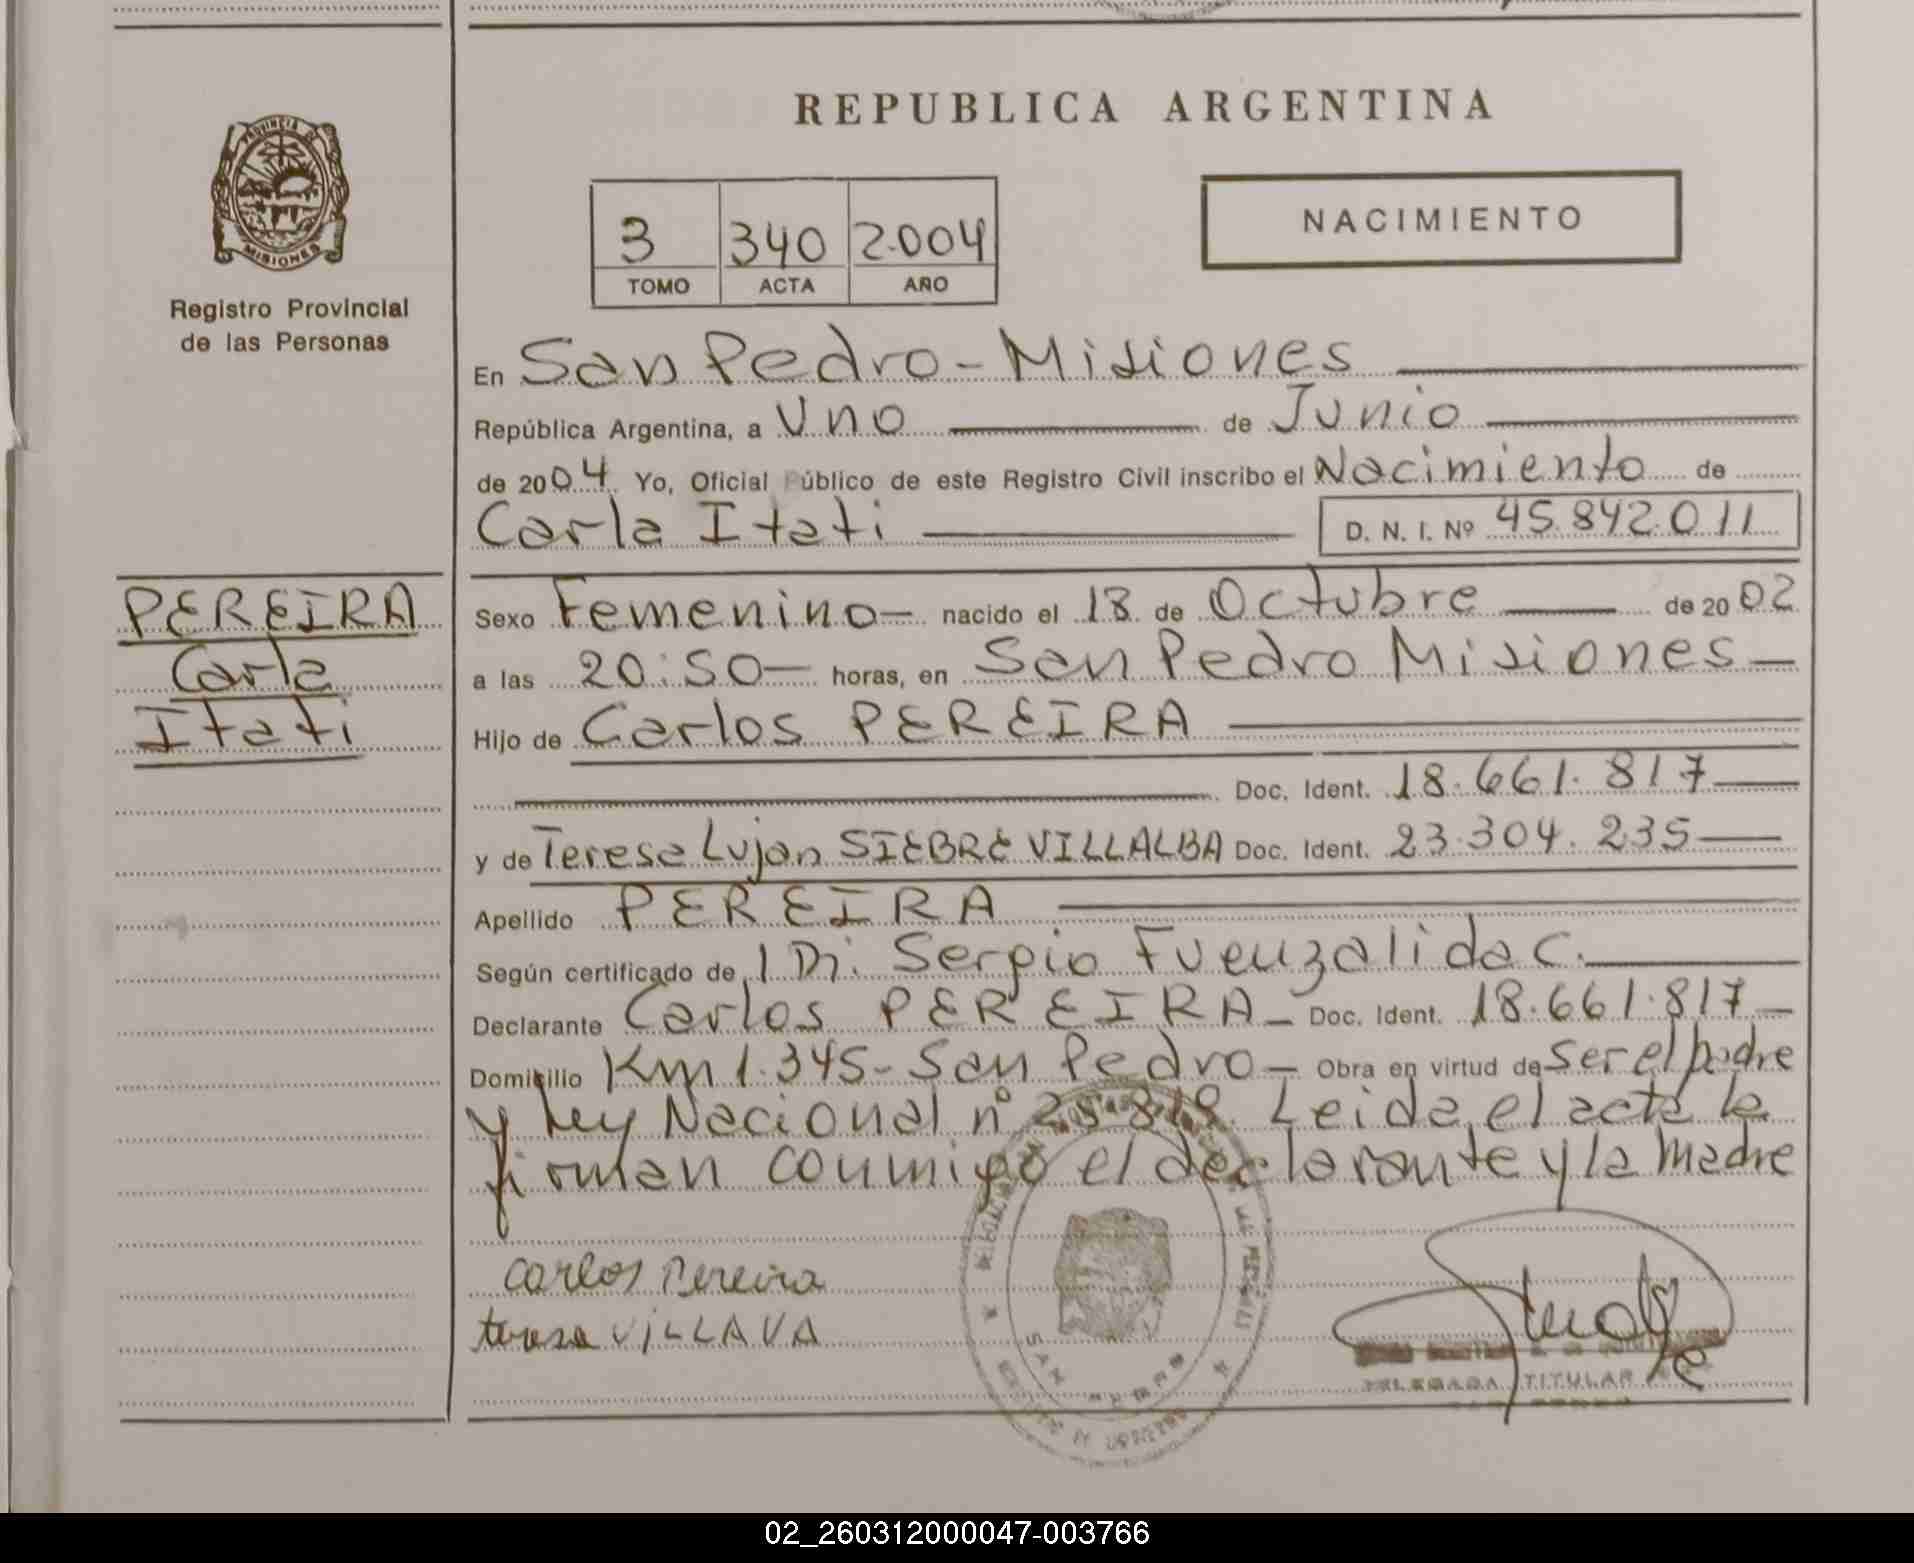 REPUBLICA ARGENTINA
PROVINCIA DE
MISIONES
Registro Provincial
de las Personas
3 340 2.004
TOMO ACTA AÑO
NACIMIENTO
En San Pedro - Misiones
República Argentina, a Uno de Junio
de 2004 Yo, Oficial Público de este Registro Civil inscribo el Nacimiento de
Carla Itati D. N. I. Nº 45.842.011
PEREIRA
Carla
Itati
Sexo Femenino- nacido el 18 de Octubre de 2002
a las 20:50- horas, en San Pedro Misiones-
Hijo de Carlos PEREIRA
Doc. Ident. 18.661.817
y de Teresa Lujan SIEBRE VILLALBA Doc. Ident. 23.304.235
Apellido PEREIRA
Según certificado de Sergio Fuenzalida C.
Declarante Carlos PEREIRA- Doc. Ident. 18.661.817-
Domicilio Km 1.345- San Pedro- Obra en virtud de Ser el padre
y Ley Nacional nº Leida el acta la
firman conmigo el declarante y la madre
carlos Pereira
teresa VILLAVA
SAN PEDRO
DELEGADA TITULAR
02_260312000047-003766